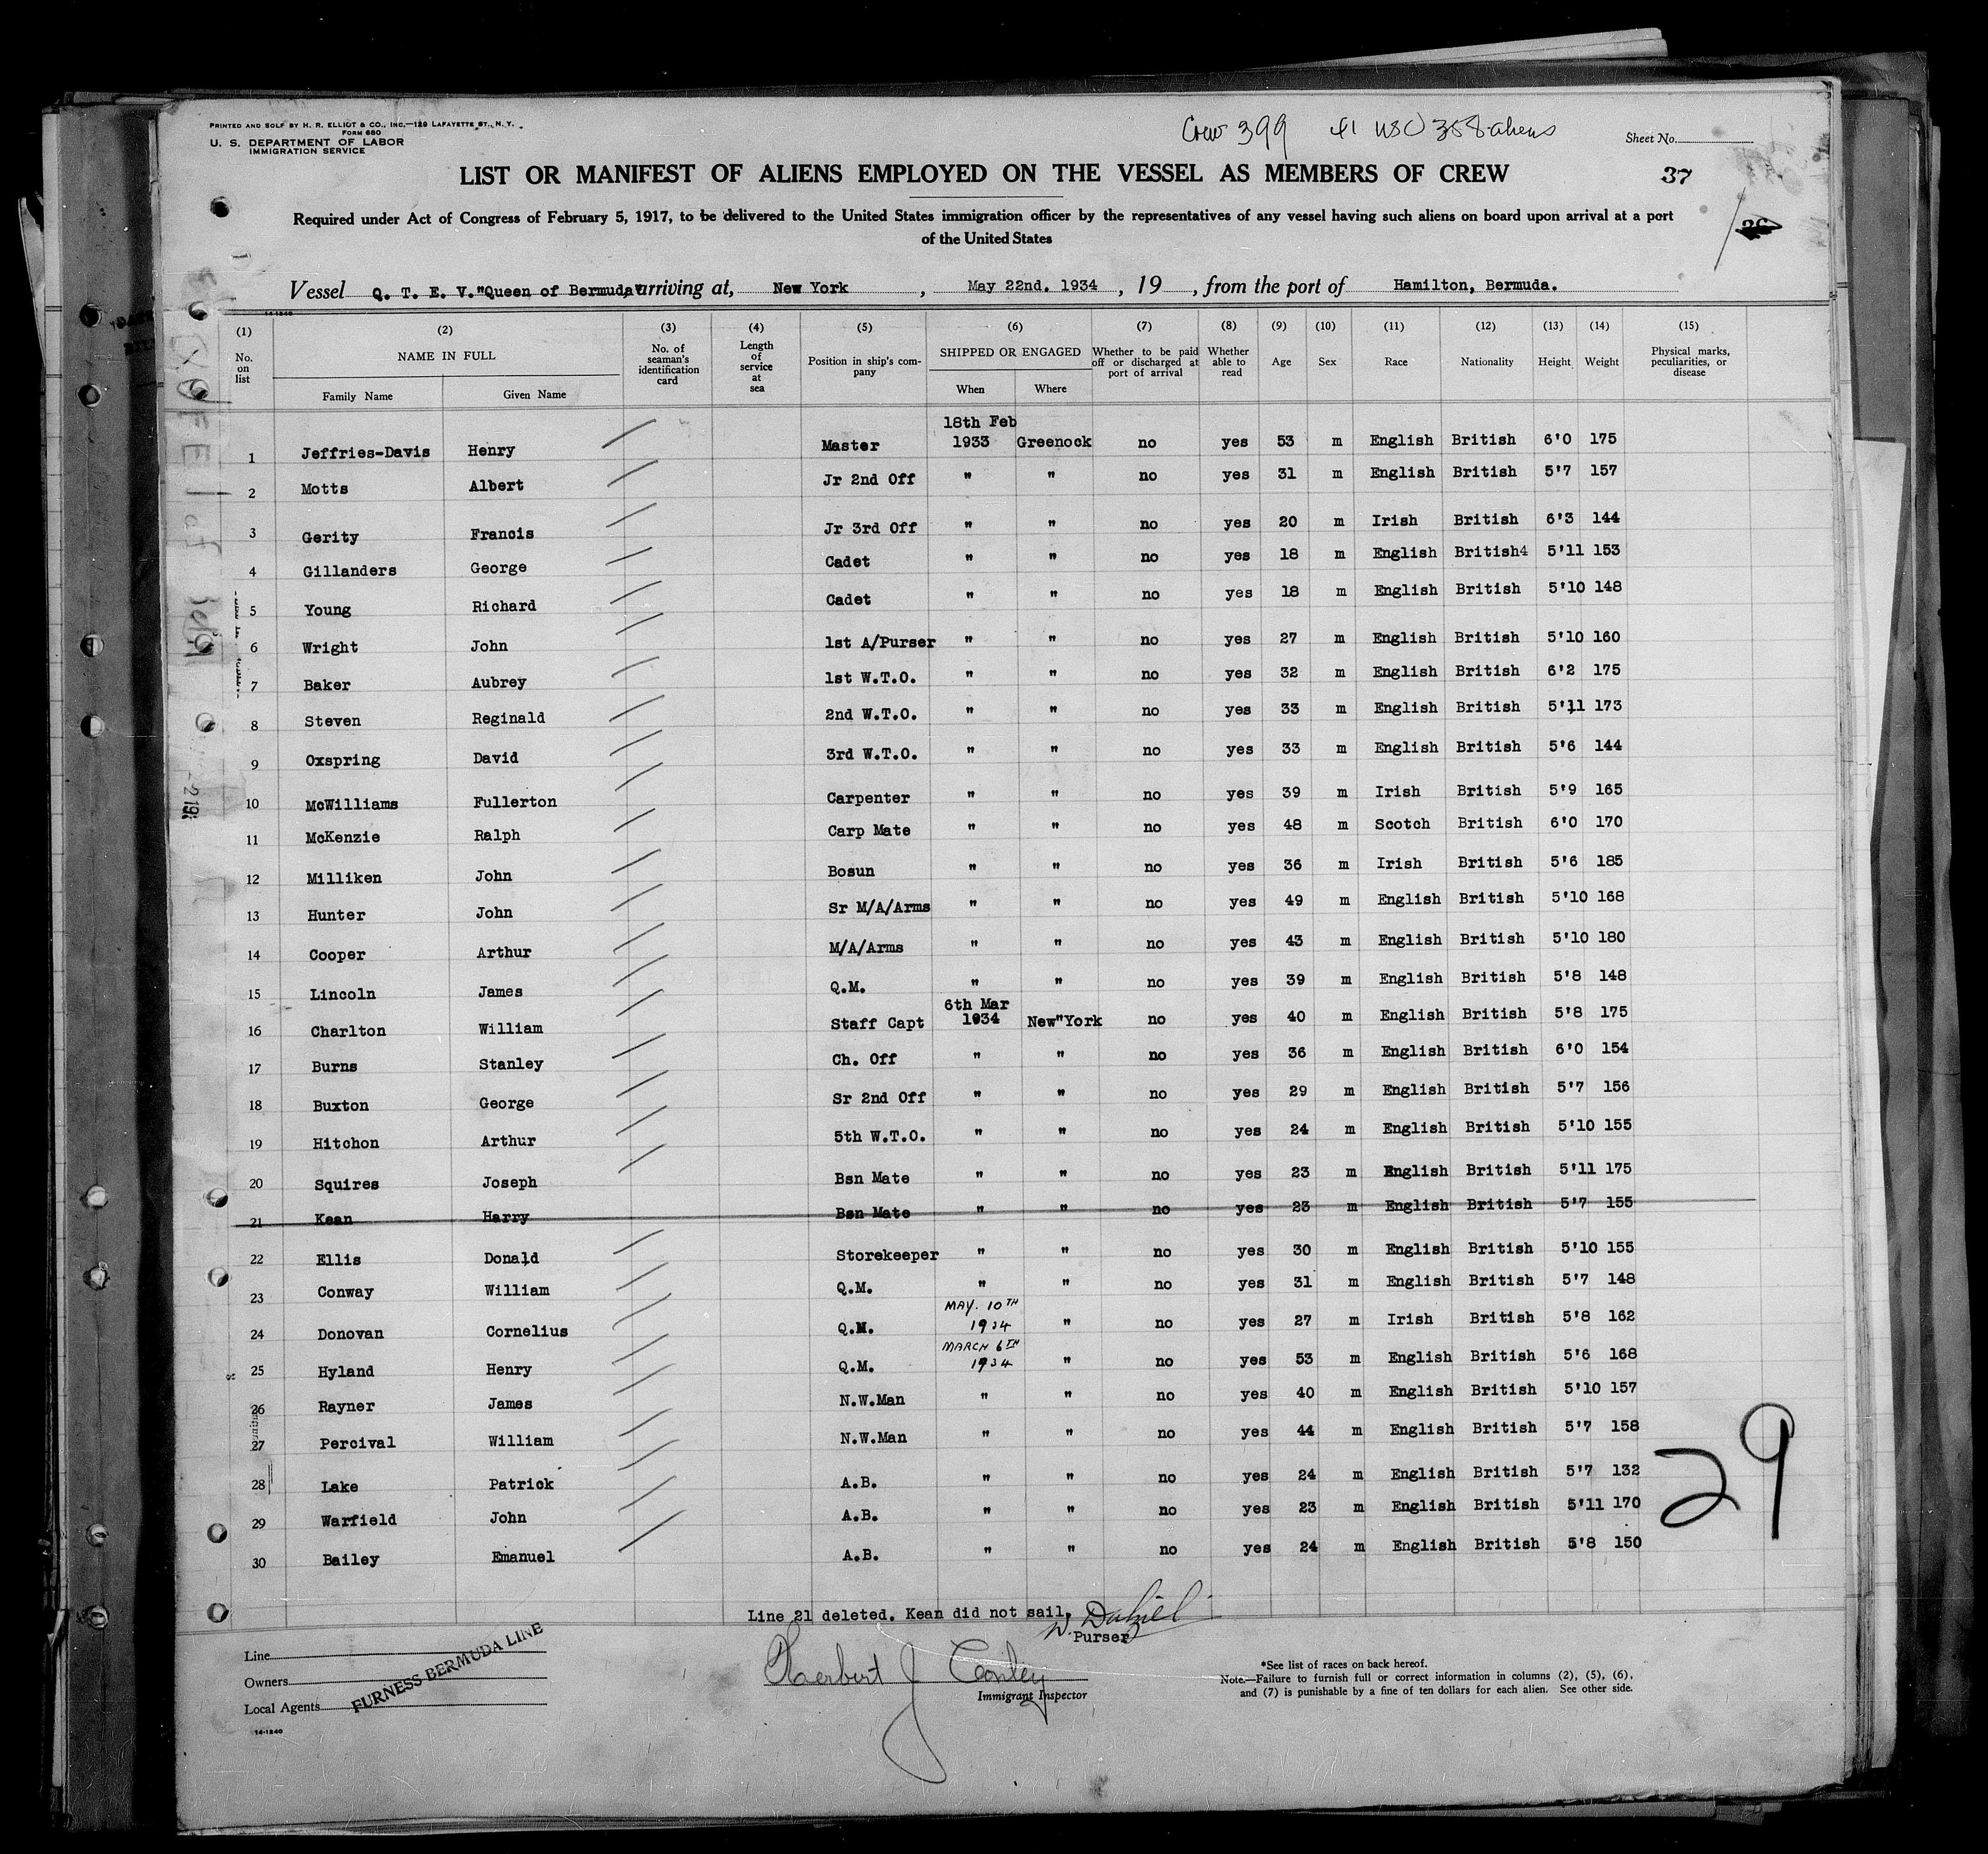 PRINTED AND SOLD BY H. R. ELLIOT & CO., INC.—129 LAFAYETTE ST., N. Y.
FORM 680
U. S. DEPARTMENT OF LABOR
IMMIGRATION SERVICE
Crew 399 41 USC 358 aliens
Sheet No.
37
LIST OR MANIFEST OF ALIENS EMPLOYED ON THE VESSEL AS MEMBERS OF CREW
Required under Act of Congress of February 5, 1917, to be delivered to the United States immigration officer by the representatives of any vessel having such aliens on board upon arrival at a port
of the United States
Vessel Q. T. E. V. "Queen of Bermuda", arriving at, New York, May 22nd. 1934, 19 , from the port of Hamilton, Bermuda.
14-1240
(1) (2) (3) (4) (5) (6) (7) (8) (9) (10) (11) (12) (13) (14) (15)
No. on list NAME IN FULL Family Name Given Name No. of seaman's identification card Length of service at sea Position in ship's company SHIPPED OR ENGAGED When Where Whether to be paid off or discharged at port of arrival Whether able to read Age Sex Race Nationality Height Weight Physical marks, peculiarities, or disease
1 Jeffries-Davis Henry Master 18th Feb 1933 Greenock no yes 53 m English British 6'0 175
2 Motts Albert Jr 2nd Off " " no yes 31 m English British 5'7 157
3 Gerity Francis Jr 3rd Off " " no yes 20 m Irish British 6'3 144
4 Gillanders George Cadet " " no yes 18 m English British4 5'11 153
5 Young Richard Cadet " " no yes 18 m English British 5'10 148
6 Wright John 1st A/Purser " " no yes 27 m English British 5'10 160
7 Baker Aubrey 1st W.T.O. " " no yes 32 m English British 6'2 175
8 Steven Reginald 2nd W.T.O. " " no yes 33 m English British 5'11 173
9 Oxspring David 3rd W.T.O. " " no yes 33 m English British 5'6 144
10 McWilliams Fullerton Carpenter " " no yes 39 m Irish British 5'9 165
11 McKenzie Ralph Carp Mate " " no yes 48 m Scotch British 6'0 170
12 Milliken John Bosun " " no yes 36 m Irish British 5'6 185
13 Hunter John Sr M/A/Arms " " no yes 49 m English British 5'10 168
14 Cooper Arthur M/A/Arms " " no yes 43 m English British 5'10 180
15 Lincoln James Q.M. " " no yes 39 m English British 5'8 148
16 Charlton William Staff Capt 6th Mar 1934 New"York no yes 40 m English British 5'8 175
17 Burns Stanley Ch. Off " " no yes 36 m English British 6'0 154
18 Buxton George Sr 2nd Off " " no yes 29 m English British 5'7 156
19 Hitchon Arthur 5th W.T.O. " " no yes 24 m English British 5'10 155
20 Squires Joseph Bsn Mate " " no yes 23 m English British 5'11 175
21 Kean Harry Bsn Mate " " no yes 23 m English British 5'7 155
22 Ellis Donald Storekeeper " " no yes 30 m English British 5'10 155
23 Conway William Q.M. " " no yes 31 m English British 5'7 148
24 Donovan Cornelius Q.M. MAY. 10TH 1934 " no yes 27 m Irish British 5'8 162
25 Hyland Henry Q.M. MARCH 6TH 1934 " no yes 53 m English British 5'6 168
26 Rayner James N.W.Man " " no yes 40 m English British 5'10 157
27 Percival William N.W.Man " " no yes 44 m English British 5'7 158
28 Lake Patrick A.B. " " no yes 24 m English British 5'7 132
29 Warfield John A.B. " " no yes 23 m English British 5'11 170
30 Bailey Emanuel A.B. " " no yes 24 m English British 5'8 150
29
Line 21 deleted. Kean did not sail.
Purser
Line
Owners
Local Agents
FURNESS BERMUDA LINE
14-1240
Herbert J Conley
Immigrant Inspector
*See list of races on back hereof.
Note.—Failure to furnish full or correct information in columns (2), (5), (6),
and (7) is punishable by a fine of ten dollars for each alien. See other side.